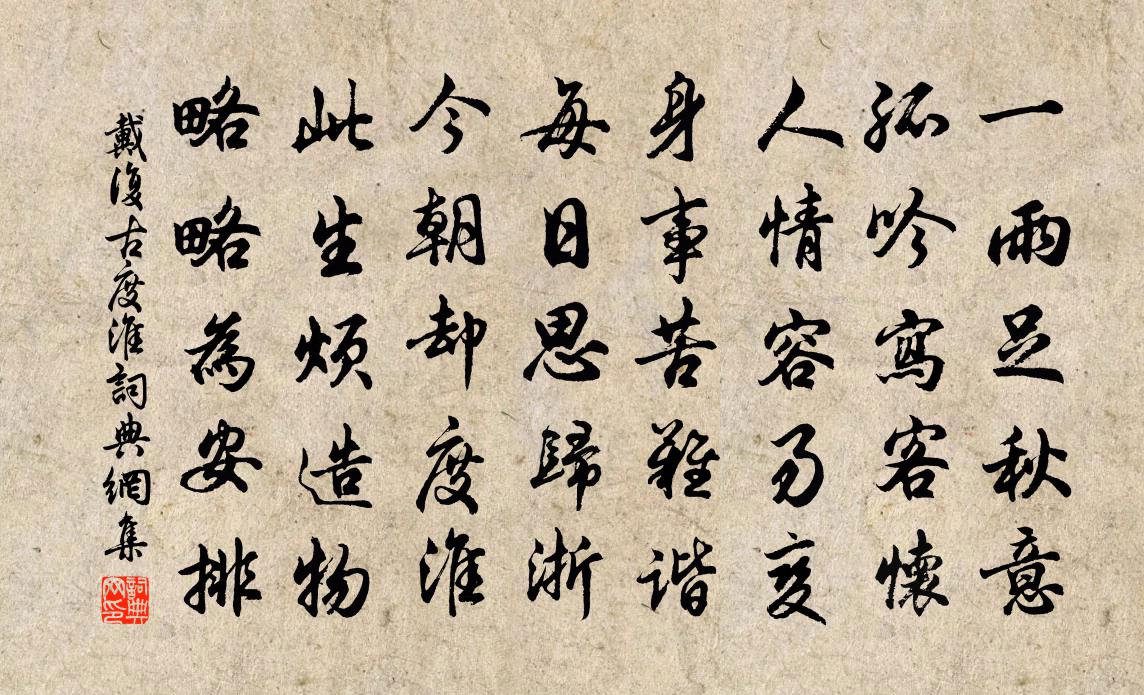 一雨足秋意
孤吟寫客懷
人情容易變
身事苦難諧
每日思歸浙
今朝却度淮
此生煩造物
略略為安排
戴復古度淮詞典網集
詞典網印